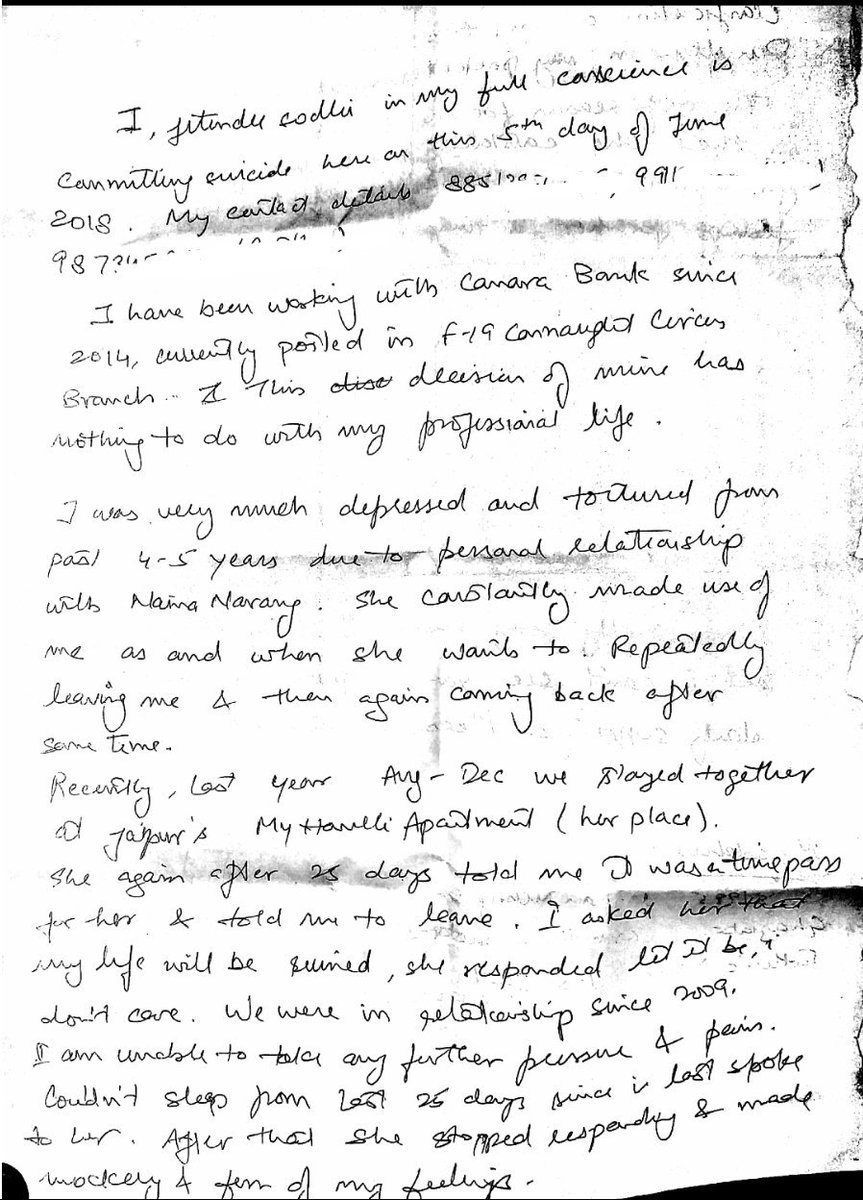 I, Jitender sodhi in my full conscience is
committing suicide here on this 5th day of June
2018. My contact details 9911
I have been working with Canara Bank since
2014, currently posted in F-19 Connaught Circus
Branch. I This decision of mine has
nothing to do with my professional life.
I was very much depressed and tortured from
past 4-5 years due to personal relationship
with Naina Narang. She constantly made use of
me as and when she wants to. Repeatedly
leaving me & then again coming back after
some time.
Recently, last year Aug-Dec we stayed together
at Jaipur's My Haveli Apartment (her place).
She again after 25 days told me It was a timepass
for her & told me to leave. I asked her that
my life will be ruined, she responded let it be, I
don't care. We were in relationship since 2009.
I am unable to take any further pressure & pain.
Couldn't sleep from last 25 days since i last spoke
to her. After that she stopped responding & made
mockery & fun of my feelings.